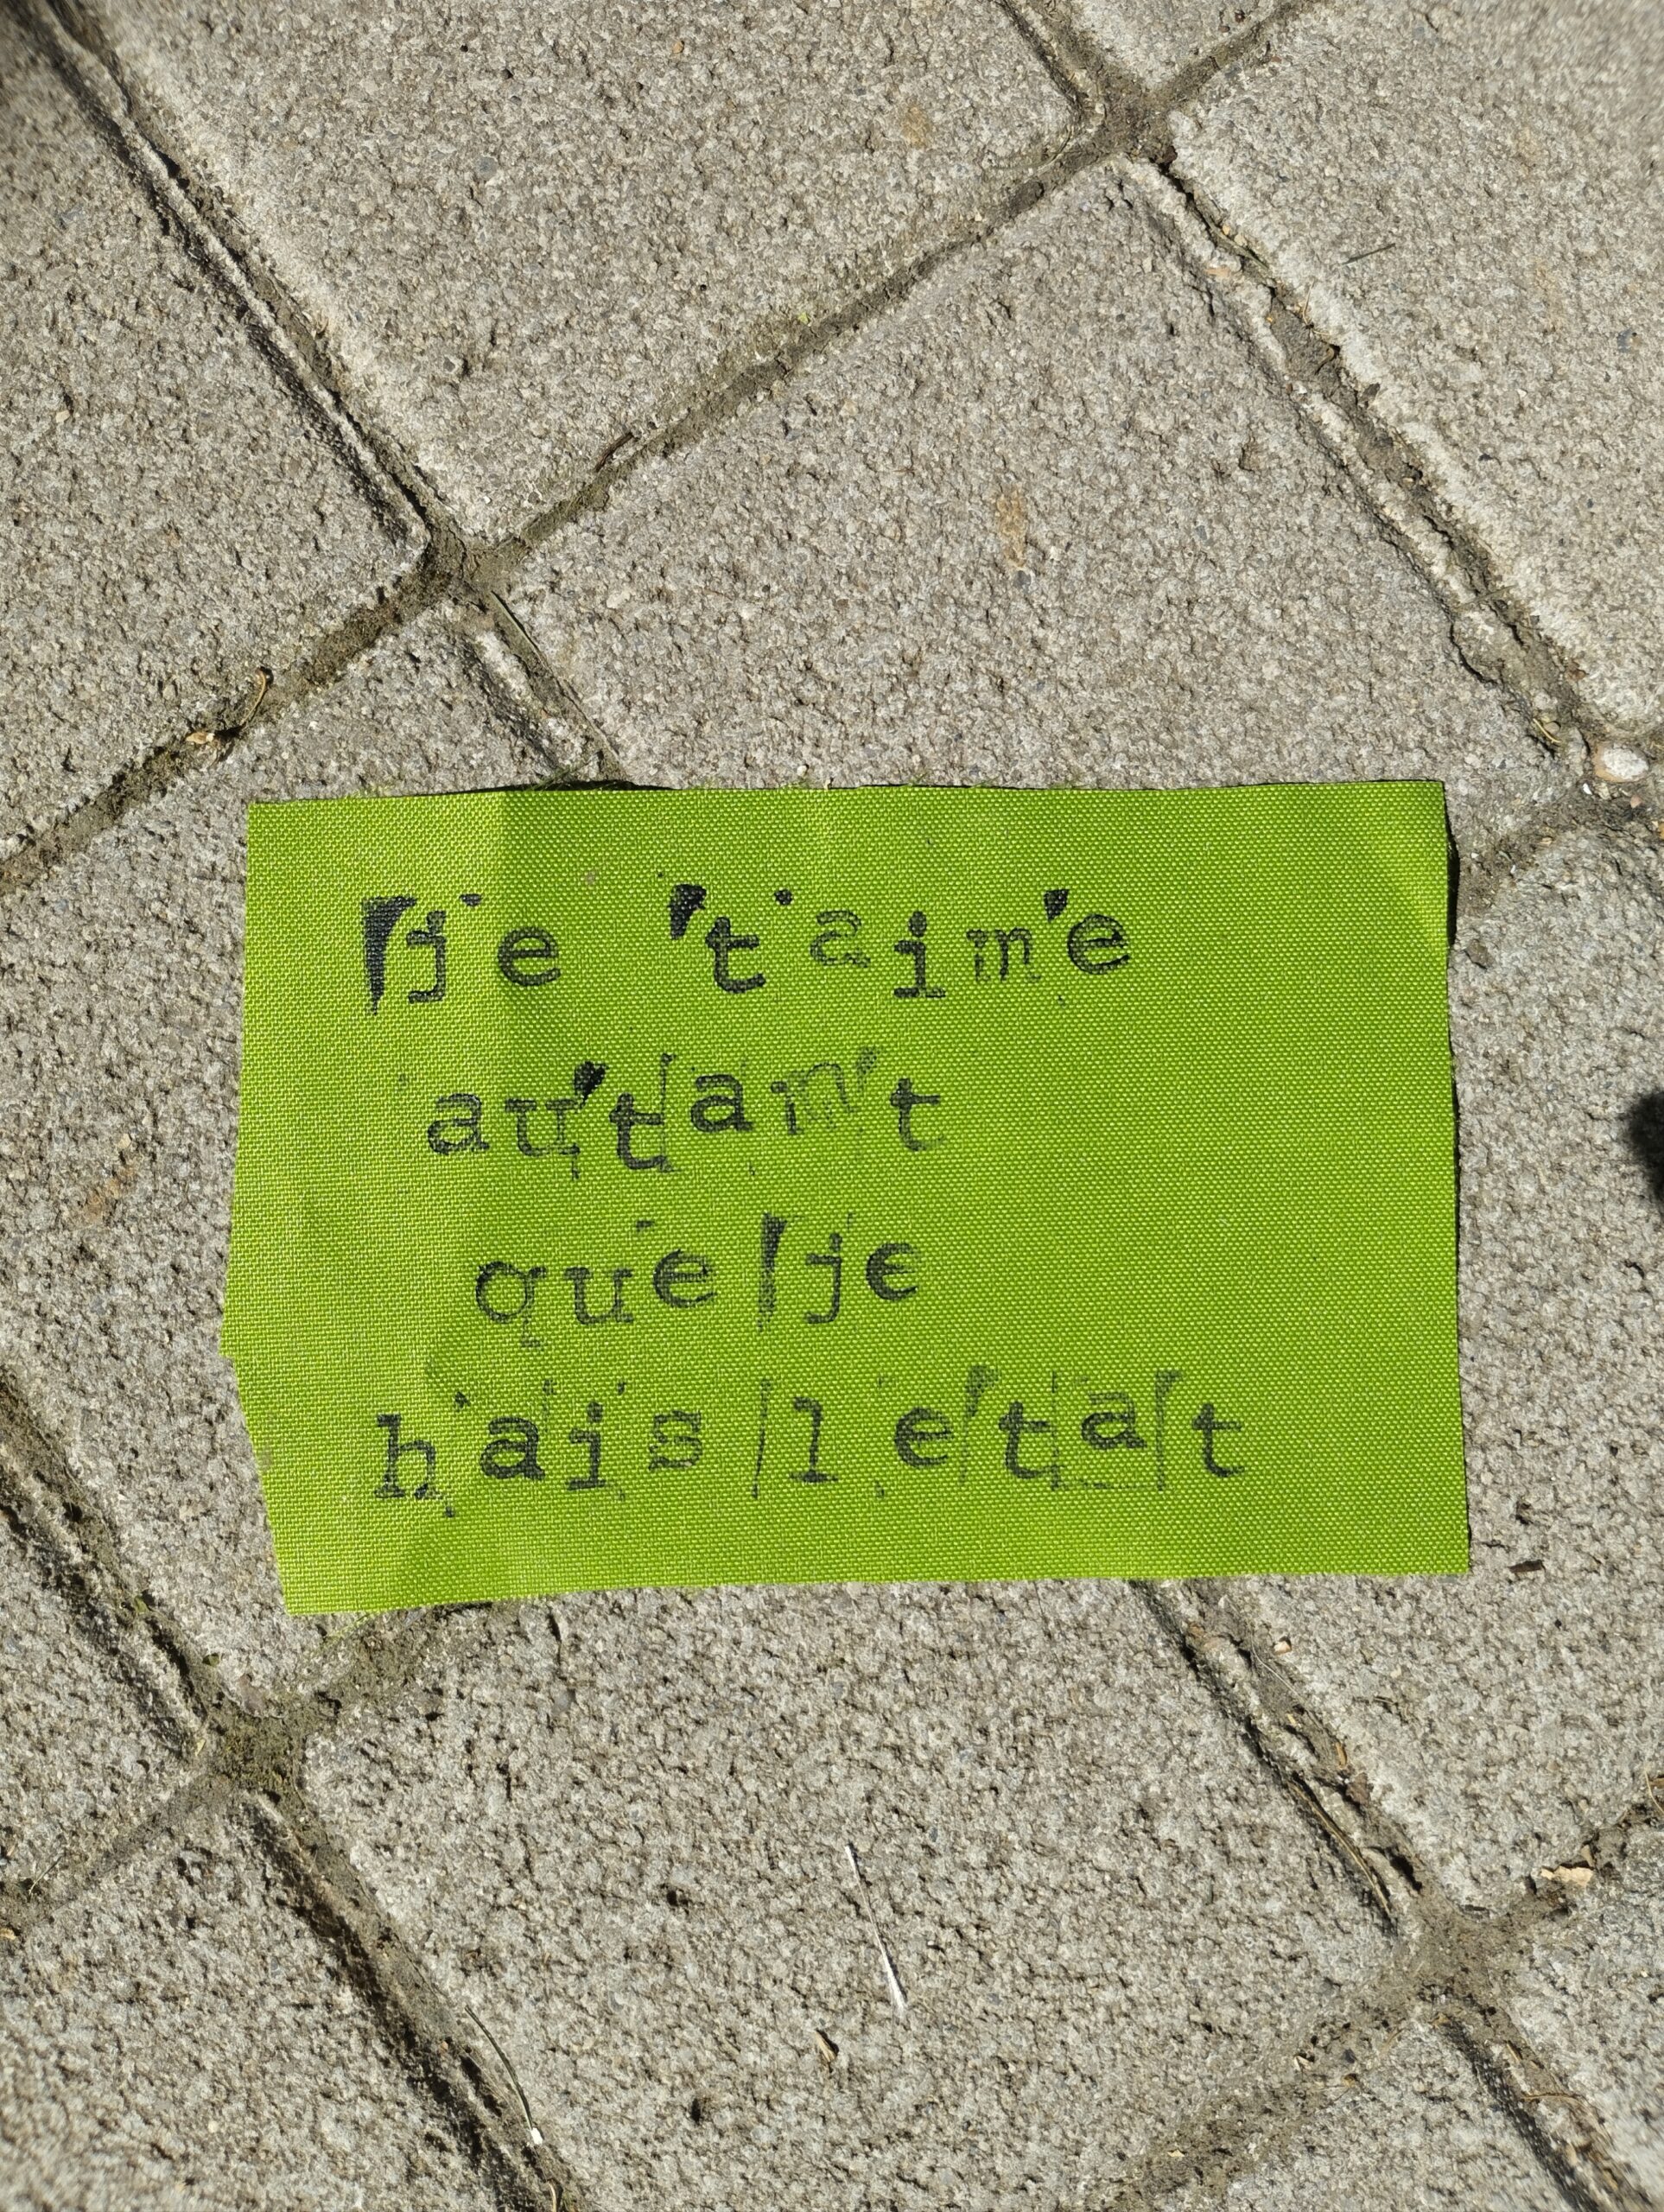 je taime
autant
que je
hais letat